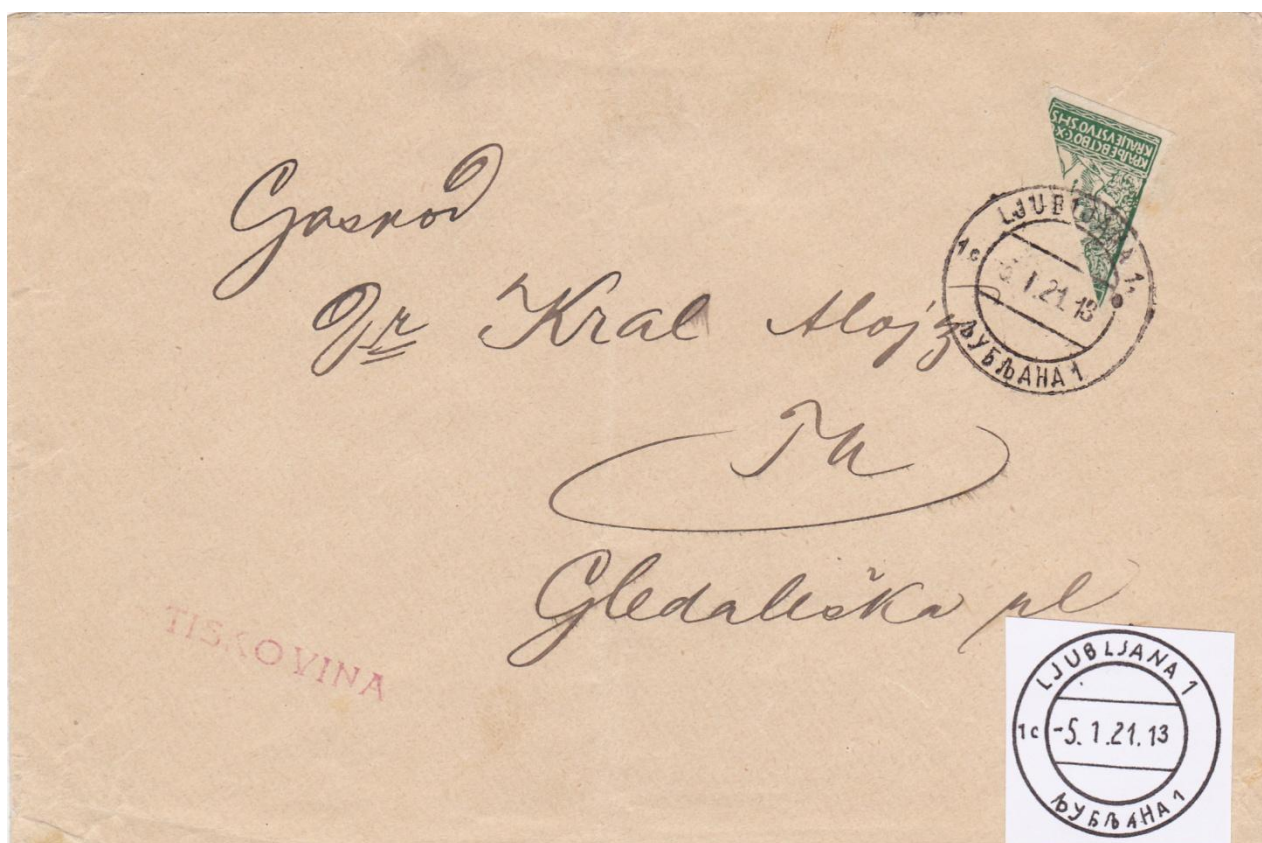 КРАЉЕВСТВО С·Х·С
KRALJEVSTVO SHS
LJUBLJANA 1
1c
5. 1. 21. 13
ЉУБЉАНА 1
Gospod
Dr Kral Alojz
Tu
Gledališka pl
TISKOVINA
LJUBLJANA 1
1c
-5. 1. 21. 13
ЉУБЉАНА 1